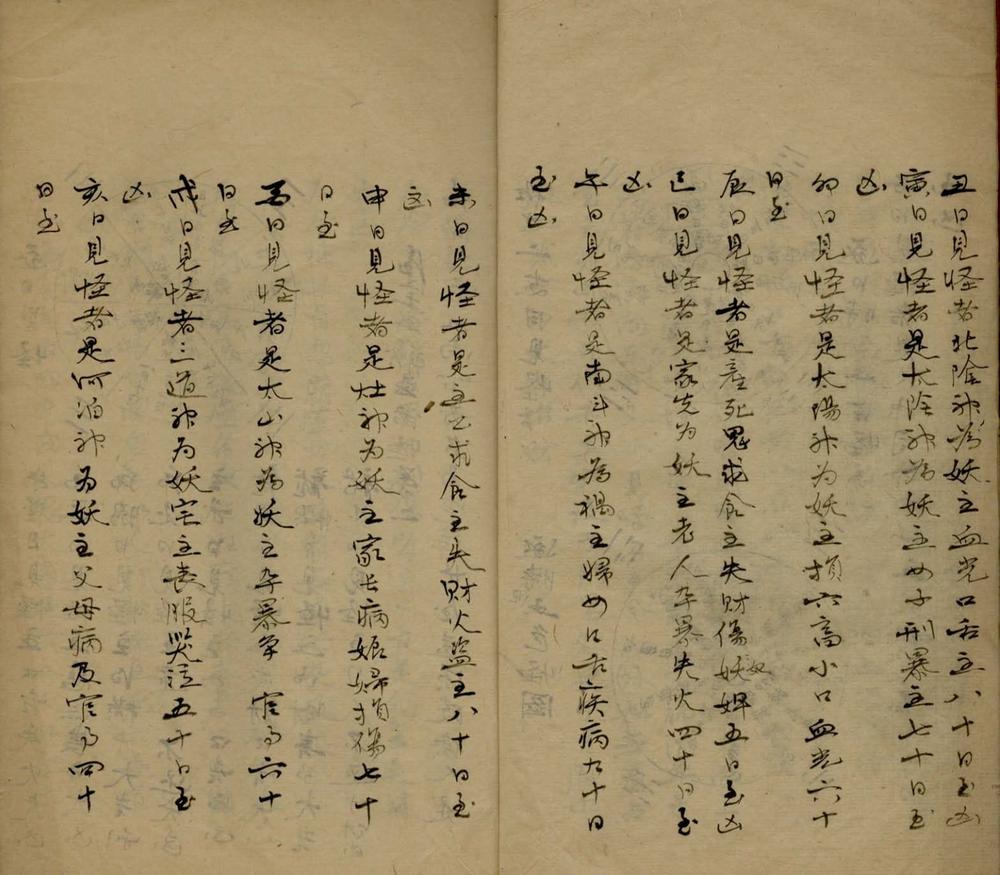 丑日見怪者北陰神為妖主血光口舌主八十日至凶
寅日見怪者是太陰神為妖主女子刑暴主七十日至
凶
卯日見怪者是太陽神为妖主損六畜小口血光六十
日至
辰日見怪者是產死鬼求食主失財傷奴婢五日至凶
巳日見怪者是家先为妖主老人卒暴失火四十日至
凶
午日見怪者是南斗神為禍主婦女口舌疾病九十日
至凶
未日見怪者是土公求食主失財火盜主八十日至
凶
申日見怪者是灶神为妖主家長病娠婦損傷七十
日至
酉日見怪者是太山神為妖主卒暴 官司六十
日至
戌日見怪者三道神为妖宅主喪服哭泣五十日至
凶
亥日見怪者是河泊神为妖主父母病及官司四十
日至